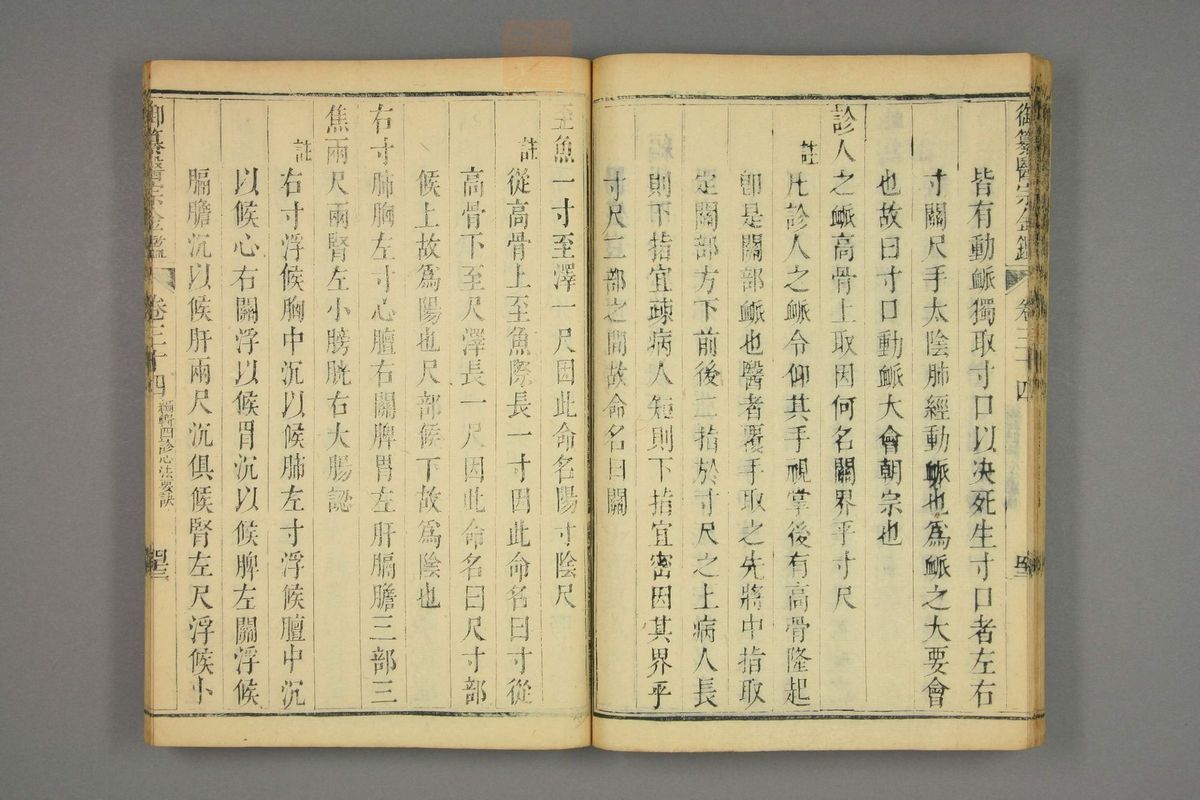 御纂醫宗金鑑 卷三十四
皆有動䘑獨取寸口以决死生寸口者左右
寸關尺手太陰肺經動䘑也爲䘑之大要會
也故曰寸口動䘑大會朝宗也
診人之䘑高骨上取因何名關界乎寸尺
註凡診人之䘑令仰其手視掌後有高骨隆起
卽是關部䘑也醫者覆手取之先將中指取
定關部方下前後二指於寸尺之上病人長
則下指宜疎病人短則下指宜密因其界乎
寸尺二部之間故命名曰關
至魚一寸至澤一尺因此命名陽寸陰尺
註從高骨上至魚際長一寸因此命名曰寸從
高骨下至尺澤長一尺因此命名曰尺寸部
候上故爲陽也尺部候下故爲陰也
右寸肺胸左寸心膻右關脾胃左肝膈膽三部三
焦兩尺兩腎左小膀胱右大腸認
註右寸浮候胸中沉以候肺左寸浮候膻中沉
以候心右關浮以候胃沉以候脾左關浮候
膈膽沉以候肝兩尺沉俱候腎左尺浮候小
御纂醫宗金鑑 卷三十四 編輯四診心法要訣